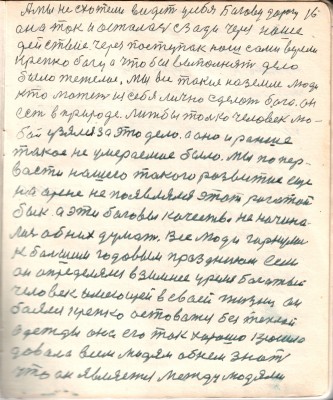 А мы не схотели видеть у себя Богову дорогу 16
она так и осталась сзади через наше
действие через поступок наш сами взяли
крепко бога чтобы выполнять дело
было тяжело. Мы все такие на земле люди
кто может из себя лично сделать бога. он
есть в природе. лишь бы только человек лю-
бой взялся за это дело. а оно и раньше
такое не умераемое было. Мы по пер-
васти нашего такого развития еще
на арене не появлялся этот рогатой
бык. а эти боговы качества не начина-
лися об них думать. Все люди гарнули
к большим годовым праздникам Если
он определялся в зимнее время богатый
человек имеющей в своей жизни он
боялся крепко остоватся без теплой
одежды она его так хорошо
довала всем людям об нем знать
что он является между людями